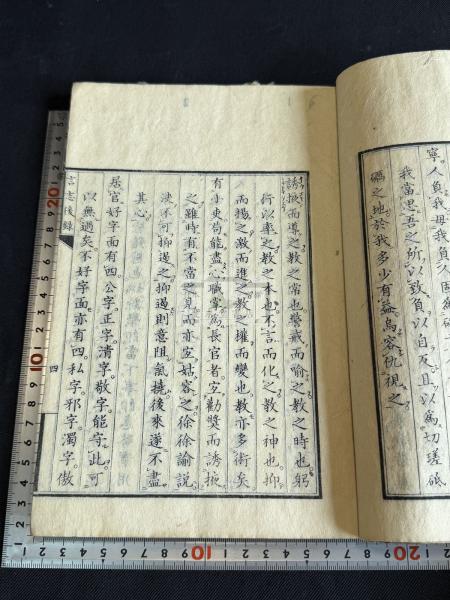 寧人負我毋我負人固
我當思吾之所以致負以自反且以爲切瑳砥
礪之地於我多少有益烏容仇視之
誘掖而導之教之常也警戒而喻之教之時也躬
行以率之教之本也不言而化之教之神也抑
而揚之激而進之教之權而變也教亦多術矣
有小吏苟能盡心職掌爲長官者宜勸奬而誘掖
之雖時有不當之見而亦宜姑容之徐徐諭説
決不可抑遏之抑遏則意阻氣撓後來遂不盡
其心
居官好字面有四公字正字清字敬字能守此可
以無過矣不好字面亦有四私字邪字濁字傲
言志後録
四